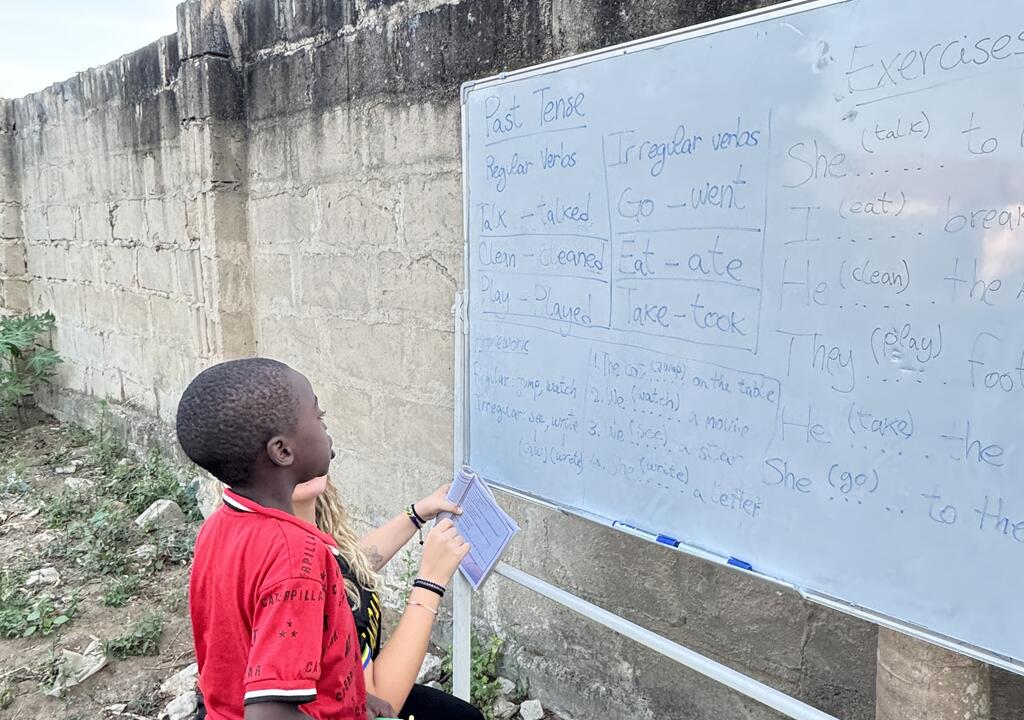 Past Tense
Regular Verbs
Irregular verbs
Talk - talked
Go - went
Clean - cleaned
Eat - ate
Play - Played
Take - took
Homework
Regular: jump, watch
Irregular: see, write
(saw) (wrote)
1. The cat (jump) on the table
2. We (watch) ..... a movie
3. We (see) ..... a star
4. She (write) ..... a letter
Exercises
She (talk) ...... to
I (eat) ......
He (clean) ...... the
They (play) ......
He (take) ...... the
She (go) ...... to the
CATERPILLA